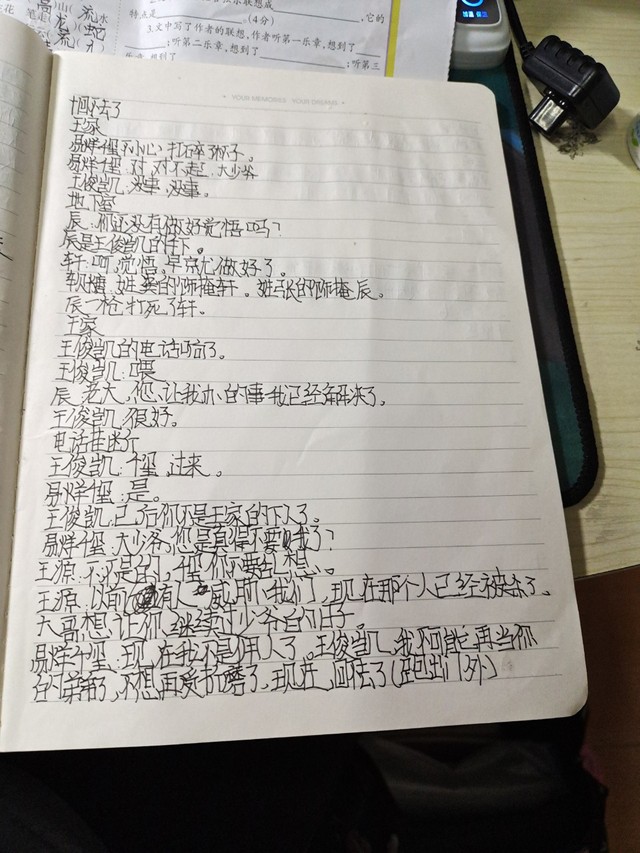 特点是________(4分) ,它的
3.文中写了作者的联想,作者听第一乐章,想到了
;听第二乐章,想到了
;听第三
YOUR MEMORIES YOUR DREAMS
回不去了
王家
易烊千玺不小心打碎瓶子。
易烊千玺:对,对不起,大少爷
王俊凯:没事,没事。
地下室
辰:你还没有做好觉悟吗?
辰是王俊凯的手下。
轩:呵,觉悟,早就做好了。
辰一枪打死了轩。
王家
王俊凯的电话响了。
王俊凯:喂
辰:老大,你让我办的事我已经解决了。
王俊凯:很好。
电话挂断了
王俊凯:千玺,过来。
易烊千玺:是。
王俊凯:已后你不是王家的下人了。
易烊千玺:大少爷,你是真得不要我了?
王源:不是的,千玺你不要乱想。
王源:以前有人威胁我们,现在那个人已经被杀了,
大哥想让你继续过少爷的日子。
易烊千玺:现在我不是佣人了,王俊凯,我不可能再当你
的弟弟了,不想再受折磨了,现在,回不去了(跑出门外)